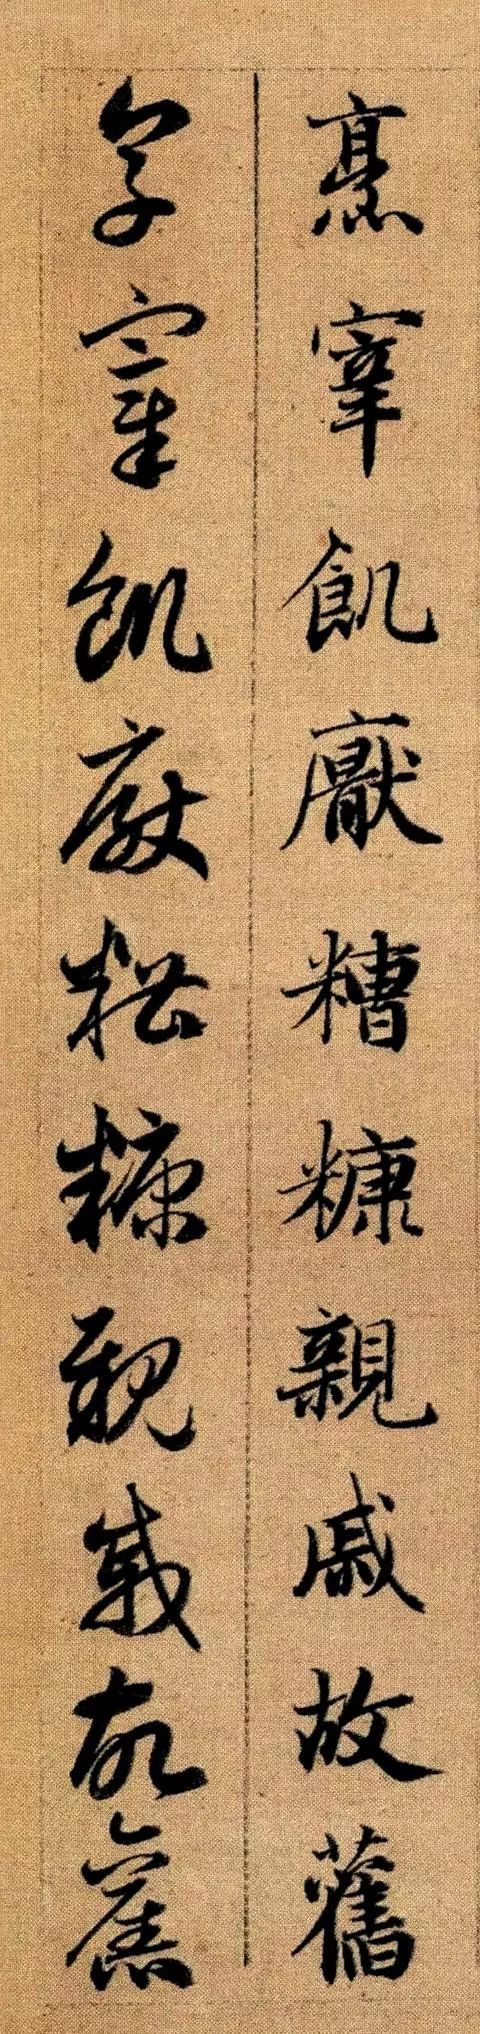 烹宰飢厭糟糠親戚故舊
烹宰飢厭糟糠親戚故舊